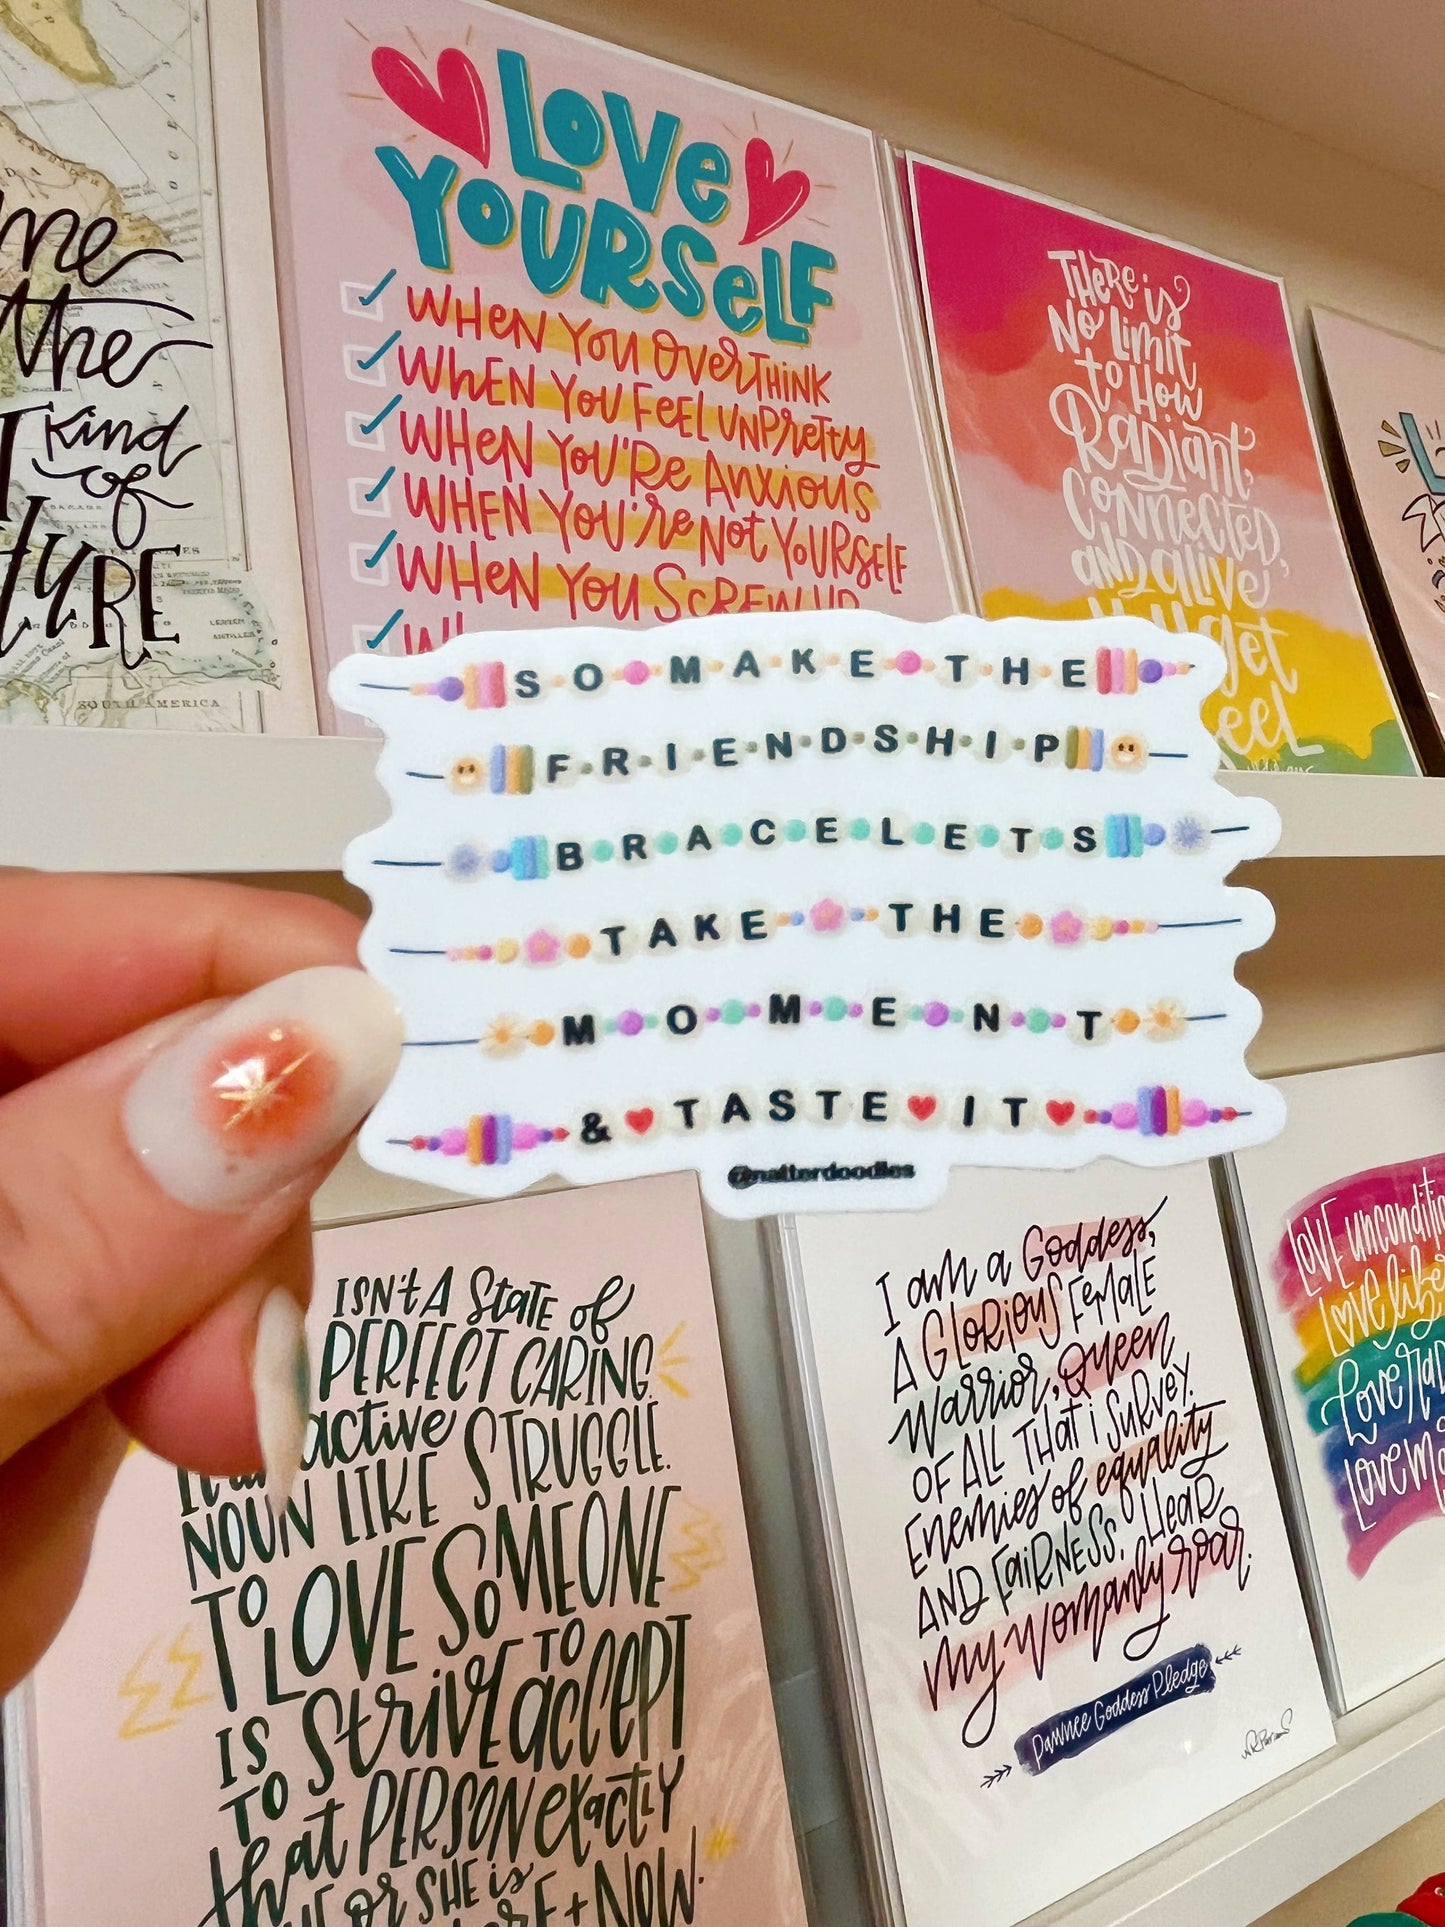 me
the
kind
of
SOUTH AMERICA
LOVE
YOURSELF
WHEN YOU OVERTHINK
WHEN YOU FEEL UNPRETTY
WHEN YOU'RE ANXIOUS
WHEN YOU'RE NOT YOURSELF
WHEN YOU SCREW UP
THERE is
NO LIMIT
to HOW
RADIANT,
CONNECTED,
AND alive
get
SO MAKE THE
FRIENDSHIP
BRACELETS
TAKE THE
MOMENT
& TASTE IT
@natterdoodles
ISN'T A STATE of
PERFECT CARING.
active
NOUN LIKE STRUGGLE.
TO LOVE SOMEONE
IS TO
STRIVE accept
TO
that PERSON exactly
OR SHE is
+ NOW.
I am a Goddess,
A GLORIOUS FEMALE
Warrior, Queen
OF ALL THAT i SURVEY.
Enemies of equality
AND FAIRNESS, HEAR
my womanly roar.
Pawnee Goddess Pledge
LOVE
Love
Love
LOVE